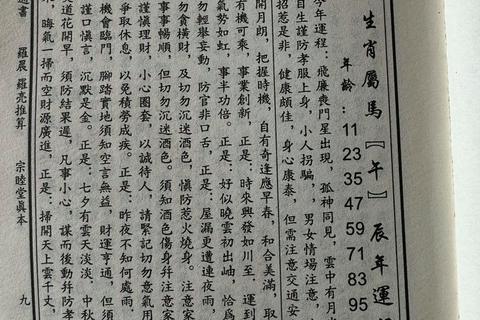 生肖屬馬〖午〗辰年運
年齡：11 23 35 47 59 71 83 95
今年運程：飛廉喪門星出現，孤神同見，雲中有月
自生謹防孝服上身，小人拐騙，男女情場注意，
招惹是非，健康頗佳，身心康泰，但需注意交通安
開月朗，把握時機，自有奇逢應早春，和合美滿，取
有機可乘，事業創新，正是：時來興發如川至，運到
氣勢如虹，事半功倍。正是：好似曉雲初出岫，恰爲
勿輕舉妄動，防官非口舌，正是：屋漏更遭連夜雨，
勿貪橫財，及切勿沉迷酒色。慎防惹火燒身。注意家
事事暢順，但切勿沉迷酒色。須知酒色傷身幷注意家
謹慎理財，小心圈套，以誠待人，請緊記切勿意氣用
爭取休息，以免積勞成疾。正是：昨夜不知何處雨，
機會臨門，腳踏實地須知空言無益，財運亨通，但
謹口慎言，沉默是金。正是：七夕有雲天淡淡，中秋
道花開早，須防結果遲，凡事小心，謀而後動幷防孝
，晦氣一掃而空財源廣進，正是：掃開天上雲千丈，
通書 羅展 羅亮推算 宗睦堂眞本 九